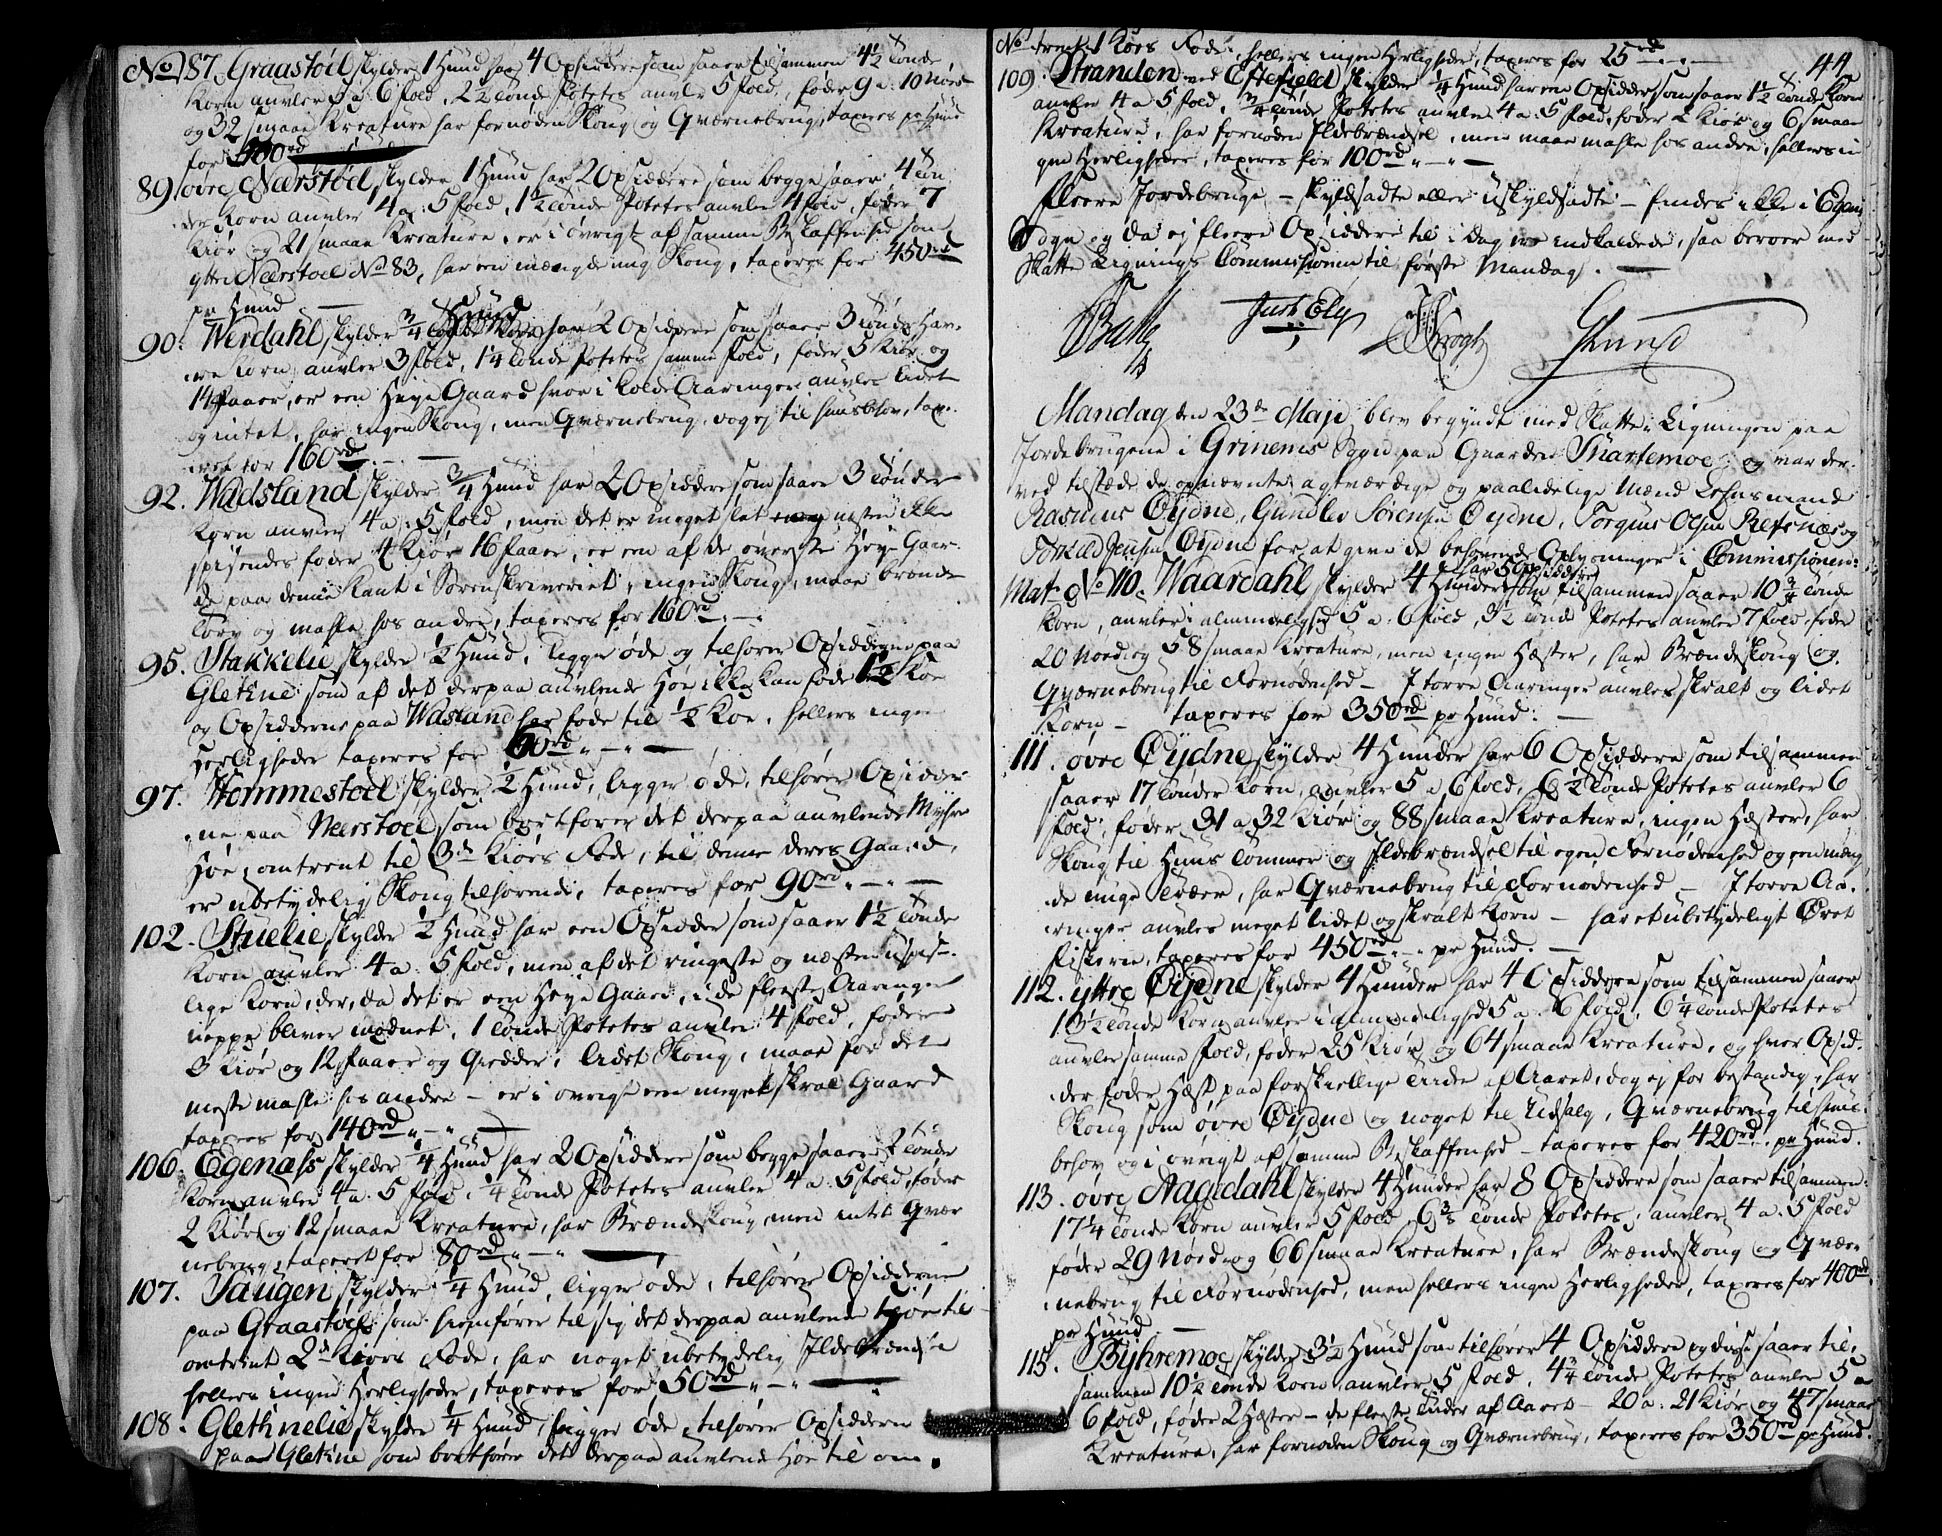 No 87. Graastoel skylder 1 Hund har 4 Opsiddere som saaer tilsammen 4½ tønde
Korn auvler 5 a 6 fold, 2½ tønde Potetes auvler 5 fold, føder 9 a: 10 Nød
og 32 smaae Kreature har fornøden Skoug og Qværnebrug, taxeres pr Hund
for 500rd
89. øvre Neerstoel skylder 1 Hund har 2 Opsiddere som begge saaer 4 Tøn
der Korn auvler 4 a: 5 fold, 1½ tønde Potetes auvler 4 fold, føder 7
Kiør og 21 smaae Kreature, er i øvrigt af samme Beskaffenhed som
yttre Neerstoel No 83, har en mængde ung Skoug, taxeres for 450rd
pr Hund
90. Werdahl skylder ¾ Hund har 2 Opsiddere som saaer 3 tønder Hav-
re Korn, auvler 3 fold, 1¼ tønde Potetes samme fold, føder 5 Kiør og
14 Faaer, er een Heye Gaard hvor i kolde Aaringer auvles lidet
og intet, har ingen Skoug, men Qværnebrug, dog ej til huusbehov, tax-
eres for 160rd
92. Wadsland skylder ¾ Hund har 2 Opsiddere som saaer 3 tønder
Korn auvler 4 a: 5 fold, men det er meget slet næsten ikke
spisendes føder 4 Kiør 16 Faaer, er en af de øverste Heye Gaar-
de paa denne Kant i Sorenskriveriet, ingen Skoug, maae brænde
Torv og mahle hos andre, taxeres for 160rd
95. Stakkelie skylder ½ Hund, ligger øde og tilhører Opsidderne paa
Gletne som af det derpaa auvlende Høe ikke kan føde 1½ Koe
og Opsidderne paa Wadsland har føde til ½ Koe, hellers ingen
Herligheder taxeres for 60rd
97. Hommestoel skylder ½ Hund, ligger øde, tilhører Opsidder
ne paa Neerstoel, som bortfører det derpaa auvlende Myhr
Høe, omtrent til 3de Kiørs Føde, til denne deres Gaard,
er ubetydelig Skoug tilhørende, taxeres for 90rd
102. Stuelie skylder ½ Hund har een Opsidder som saaer 1½ tønde
Korn auvler 4 a: 5 fold, men af det ringeste og næsten uspis-
lige Korn, der, da det er een Heye Gaard, i de fleeste Aaringer
neppe bliver modnet, 1 tønde Potetes auvler 4 fold, føder
3 Kiør og 12 Faaer og Gedder, lidet Skoug, maae for det
meste mahle hos andre – er i øvrigt een meget skral Gaard
taxeres for 140rd
106. Egenæss skylder ¼ Hund har 2 Opsiddere som begge saaer 2 tønder
Korn auvler 4 a: 5 fold, ¼ tønde Potetes auvler 4 a: 5 fold, føder
2 Kiør og 12 smaae Kreature, har Brændeskoug men intet Qvær
nebrug, taxeret for 80rd
107. Haugen skylder ¼ Hund, ligger øde, tilhører Opsidderne
paa Graastoel som hiemfører til sig det derpaa auvlende Høe til
omtrent 2de Kiørs Føde, har noget ubetydelig Ildebrændsel
hellers ingen Herligheder, taxeres for 50rd
108. Glethnelie skylder ¼ Hund, ligger øde, tilhører Opsidderne
paa Gletne som bortfører det derpaa auvlende Høe til om
44
No trent 1 Koes Føde, hellers ingen Herligheder, taxeres for 25rd
109. Stranden ved Eftefield skylder ¼ Hund har een Opsidder som saaer 1½ tønde Korn
auvler 4 a 5 fold, ¾ tønde Potetes auvler 4 a: 5 fold, føder 2 Kiør og 6 smaae
Kreature, har fornøden Ildebrændsel, men maae mahle hos andre, hellers in
gen Herligheder, taxeres for 100rd
Fleere Jordebruge – skyldsadte eller uskyldsadte – findes ikke i Egens
Sogn og da ej fleere Opsiddere til i Dag ere indkaldede, saa beroer med
Skatte Ligningss Commissionen til første Mandag.
Just Ely
Krogh
Mandag den 23de Maji blev begyndt med Skatte Ligningen paa
Jordebrugene i Grinems Sogn paa Gaarden Snartemoe, og var der-
ved tilstæde de opnævnte agtværdige og paalidelige Mænd Lehnsmand
Rasmus Øydne, Gundlev Sørensen Øydne, Torgius Olsen Refsnæs og
Tønnes Jensen Øydne for at give de behøvende Oplysninger i Commissionen:
Mat. No 110. Waardahl skylder 4 Hunder har 5 Opsiddere som tilsammen saaer 10¾ tønde
Korn, auvler i almindelighed 5 a: 6 fold, 3½ tønde Potetes auvler 7 fold, føder
20 Nød og 58 smaae Kreature, men ingen Hæster, har Brændeskoug og
Qværnebrug til Fornødenhed – I tørre Aaringer auvles skralt og lidet
Korn – taxeres for 350rd pr Hund.
111. øvre Øydne skylder 4 Hunder har 6 Opsiddere som tilsammen
saaer 17 tønder Korn, auvler 5 a 6 fold, 6½ tønde Potetes auvler 6
fold, føder 31 a 32 Kiør og 88 smaae Kreature, ingen Hæster, har
Skoug til Huus Tømmer og Ildebrændsel til egen Fornødenhed og een mæng
de unge Træer, har Qværnebrug til Fornødenhed – I tørre Aa-
ringer auvles meget lidet og skralt Korn – har et ubetydeligt Øret
Fiskerie, taxeres for 450rd pr Hund.
112. yttre Øydne skylder 4 Hunder har 4 Opsiddere som tilsammen saaer
13½ tønde Korn auvler i almindelighed 5 a: 6 fold, 6¼ tønde Potetes
auvler samme fold, føder 25 Kiør og 64 smaae Kreature, og hver Opsid-
der føder Hæst paa forskiellige Tiider af Aaret, dog ej for bestandig, har
Skoug som øvre Øydne og noget til Udsalg, Qværnebrug til huus-
behov og i øvrigt af samme Beskaffenhed – taxeres for 420rd pr Hund.
113. øvre Aagedahl skylder 4 Hunder har 8 Opsiddere som saaer tilsammen
17¼ tønde Korn auvler 5 fold, 6⅜ tønde Potetes, auvler 4 a: 5 fold
føder 29 Nød og 66 smaae Kreature, har Brændeskoug og Qvær-
nebrug til Fornødenhed, men hellers ingen Herligheder, taxeres for 400rd
pr Hund
115. Byhremoe skylder 3½ Hund som tilhører 4 Opsiddere og disse saaer til-
sammen 10½ tønde Korn auvler 5 fold, 4¾ tønde Potetes auvler 5 a
6 fold, føder 2 Hæster – de fleeste Tiider af Aaret – 20 a: 21 Kiør og 47 smaae
Kreature, har fornøden Skoug og Qværnebrug, taxeres for 350rd pr Hund.